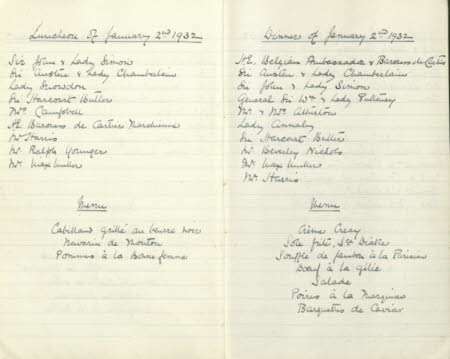 Luncheon of January 2nd 1932
Sir John & Lady Simon
Sir Austen & Lady Chamberlain
Lady Snowdon
Sir Harcourt Butler
Mrs Campbell
H.E. Baroness de Cartier Marchienne
Mr Harris
Mr Ralph Younger
Mr Wax Muller
Menu
Cabillaud Grillé au beurre noir
Navarin de Mouton
Pommes à la Bonne femme
Dinner of January 2nd 1932
H.E. Belgian Ambassador & Baroness de Cartier
Sir Austen & Lady Chamberlain
Sir John & Lady Simon
General Sir Wm & Lady Pulteney
Mr & Mrs Atherton
Lady Annaly
Sir Harcourt Butler
Mr Beverley Nichols
Mr Wax Muller
Mr Harris
Menu
Crème Crecy
Sole frite, Sce Diable
Souffle de Jambon à la Parisienne
Boeuf à la gélée
Salade
Poires à la
Barquettes de Caviar